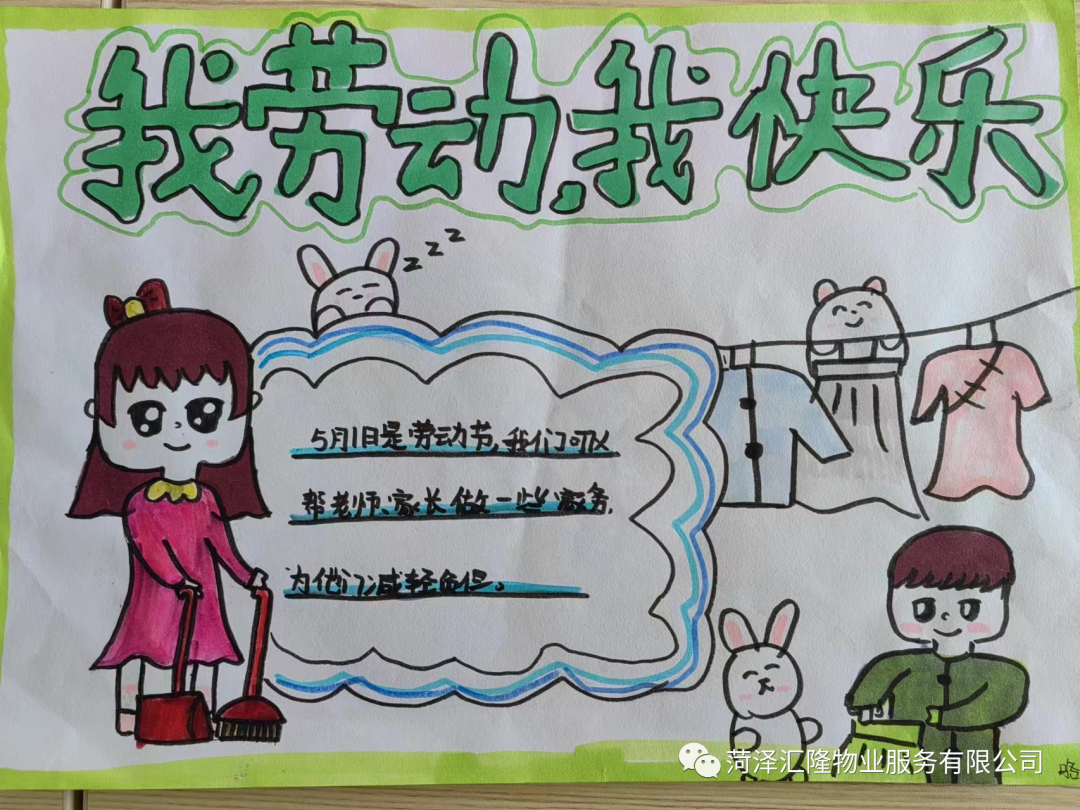 我劳动,我快乐
z z z
5月1日是劳动节,我们可以
帮老师、家长做一些家务,
为他们减轻负担。
菏泽汇隆物业服务有限公司